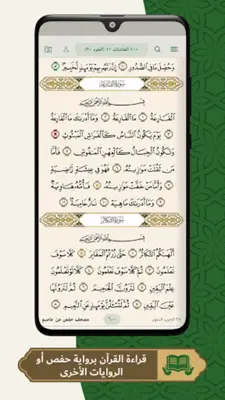 ١٠٠-العاديات ١١ (الجزء ٣٠)
وَحُصِّلَ مَا فِي الصُّدُورِ ۝ إِنَّ رَبَّهُم بِهِمْ يَوْمَئِذٍ لَّخَبِيرٌ ۝
سُورَةُ القَارِعَةِ
بِسْمِ اللَّهِ الرَّحْمَٰنِ الرَّحِيمِ
الْقَارِعَةُ ۝ مَا الْقَارِعَةُ ۝ وَمَا أَدْرَاكَ مَا الْقَارِعَةُ ۝
يَوْمَ يَكُونُ النَّاسُ كَالْفَرَاشِ الْمَبْثُوثِ ۝
وَتَكُونُ الْجِبَالُ كَالْعِهْنِ الْمَنفُوشِ ۝ فَأَمَّا مَن ثَقُلَتْ
مَوَازِينُهُ ۝ فَهُوَ فِي عِيشَةٍ رَّاضِيَةٍ
۝ وَأَمَّا مَنْ خَفَّتْ مَوَازِينُهُ ۝ فَأُمُّهُ هَاوِيَةٌ
۝ وَمَا أَدْرَاكَ مَا هِيَهْ ۝ نَارٌ حَامِيَةٌ ۝
سُورَةُ التَّكَاثُرِ
بِسْمِ اللَّهِ الرَّحْمَٰنِ الرَّحِيمِ
أَلْهَاكُمُ التَّكَاثُرُ ۝ حَتَّىٰ زُرْتُمُ الْمَقَابِرَ ۝ كَلَّا سَوْفَ
تَعْلَمُونَ ۝ ثُمَّ كَلَّا سَوْفَ تَعْلَمُونَ ۝ كَلَّا لَوْ تَعْلَمُونَ
عِلْمَ الْيَقِينِ ۝ لَتَرَوُنَّ الْجَحِيمَ ۝ ثُمَّ لَتَرَوُنَّهَا
عَيْنَ الْيَقِينِ ۝ ثُمَّ لَتُسْأَلُنَّ يَوْمَئِذٍ عَنِ النَّعِيمِ ۝
٦٠٠
مصحف حفص عن عاصم
قراءة القرآن برواية حفص أو
الروايات الأخرى